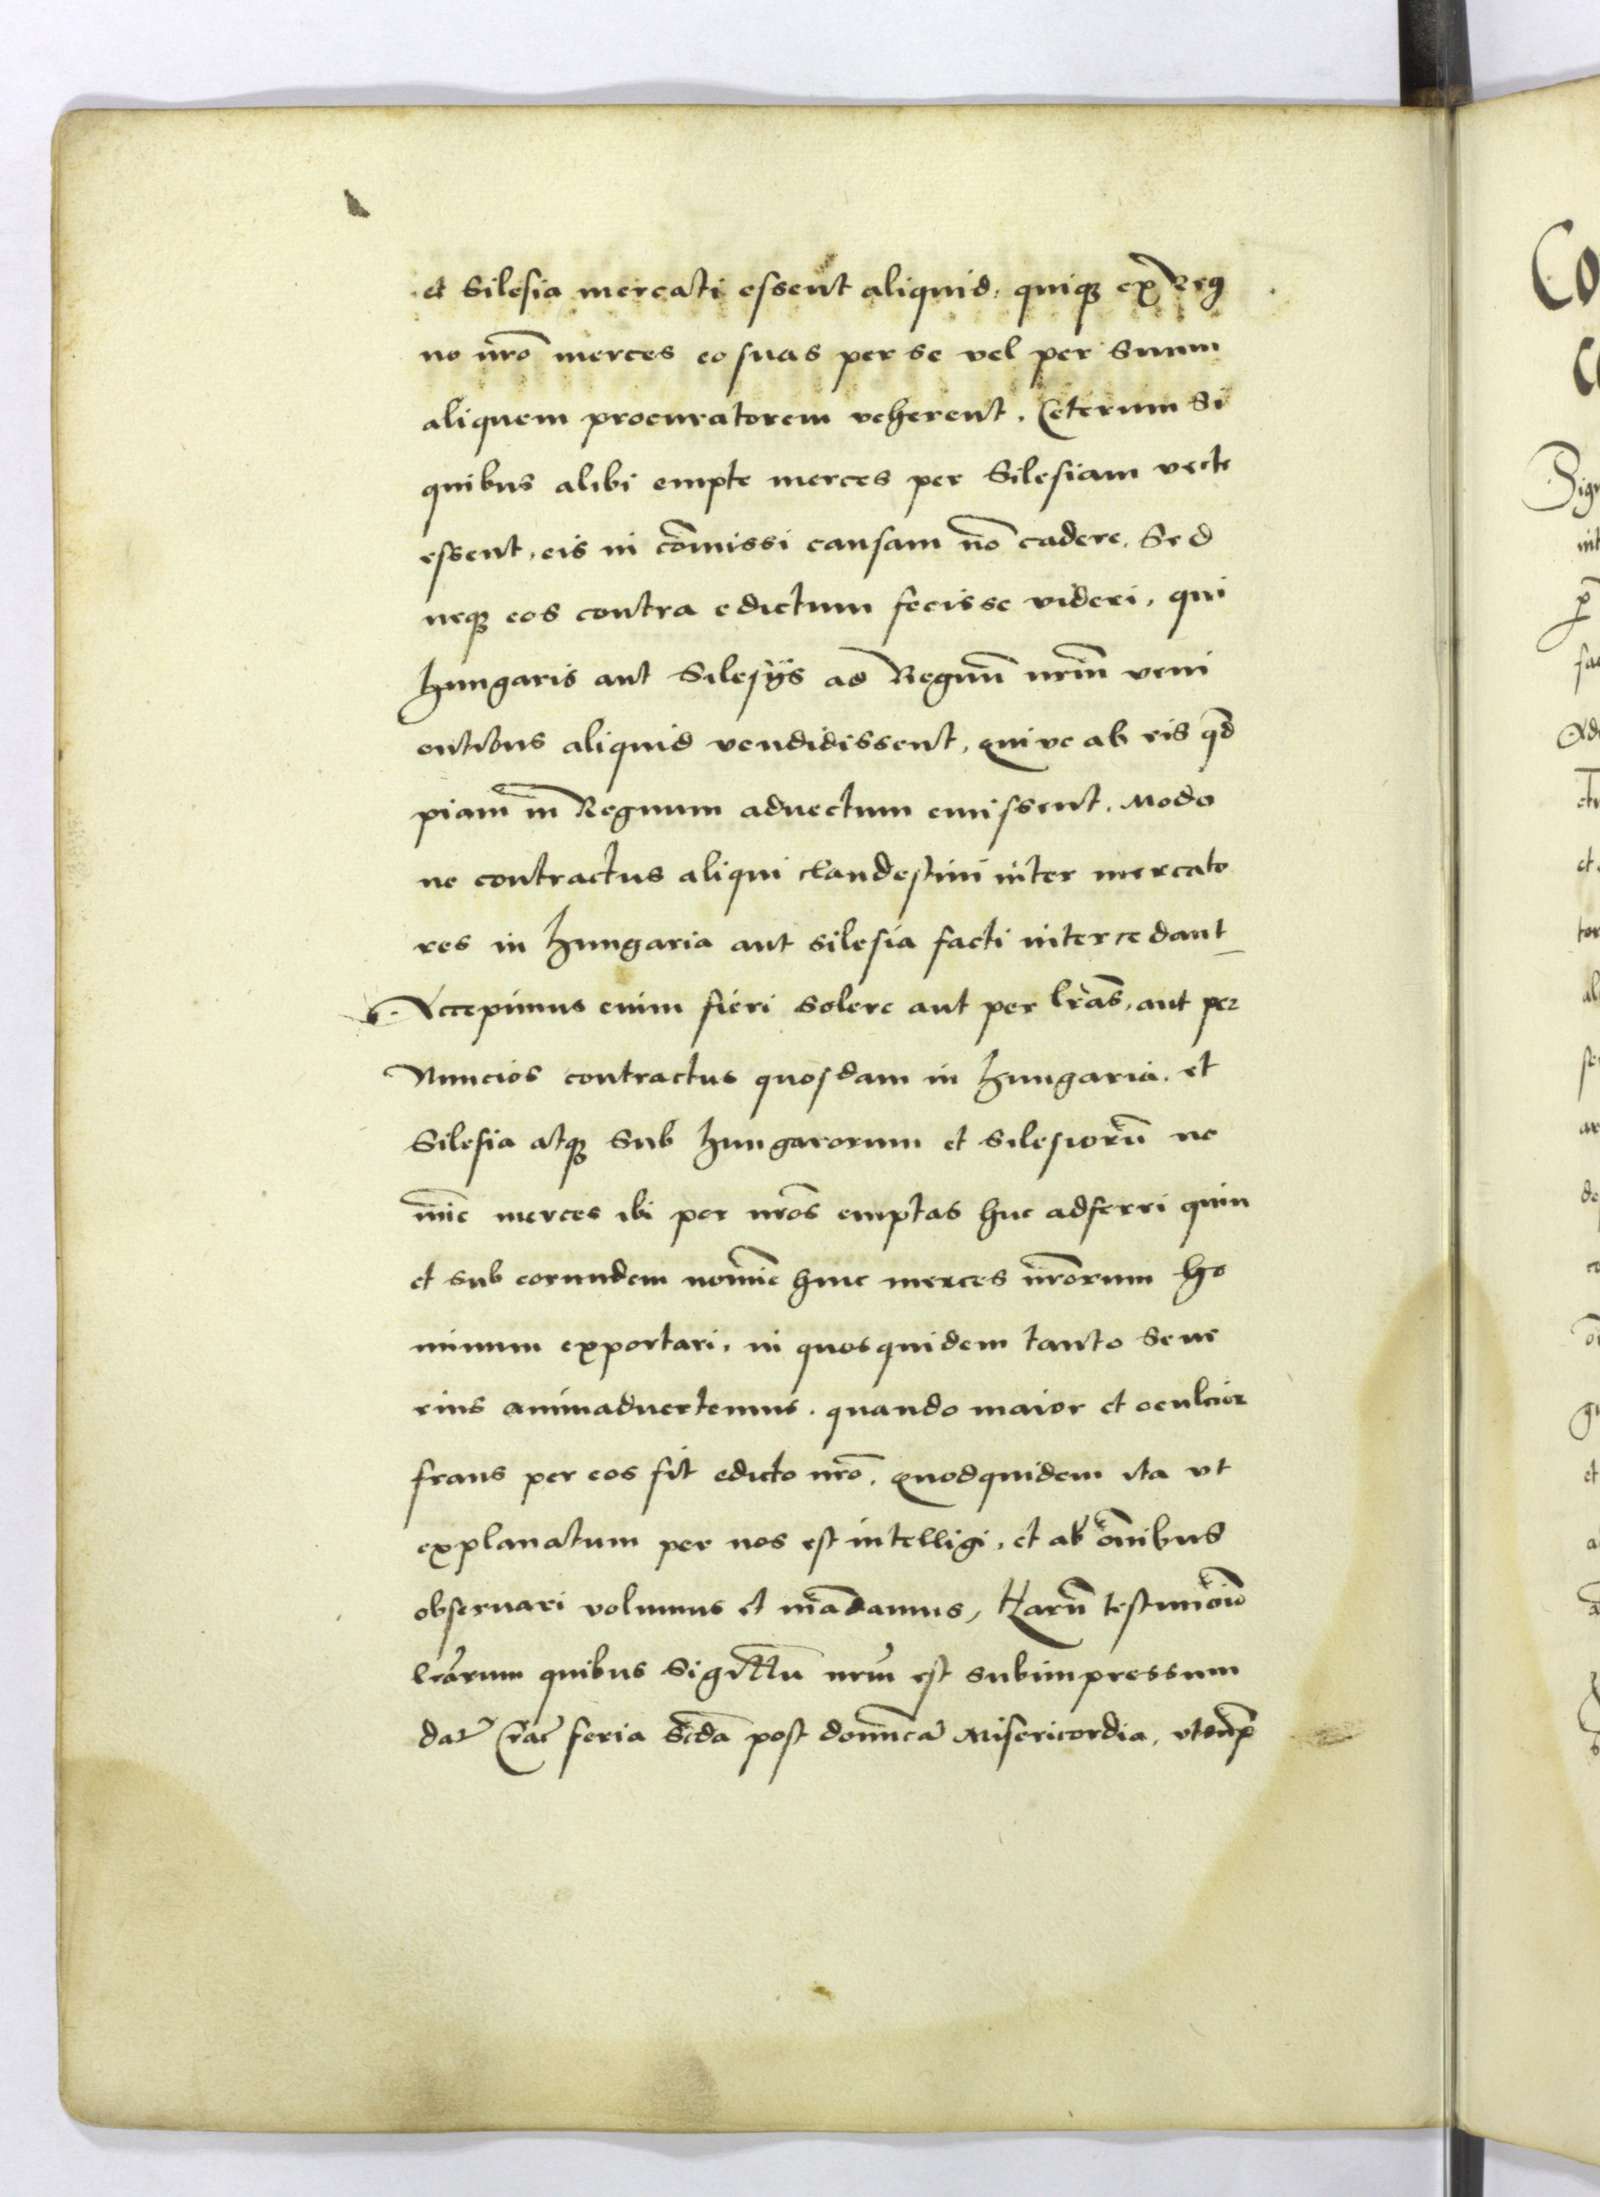 et Silesia mercati essent aliquid, quiqꝫ ex Reg
no nr̄o merces eo suas per se vel per Suum
aliquem procuratorem veherent. Ceterum Si
quibus alibi empte merces per Silesiam vecte
essent, eis in com̄issi causam nō cadere. Sed
neqꝫ eos contra edictum fecisse videri, qui
Hungaris aut Silesijs ad Regnū nrm̄ veni
entibus aliquid vendidissent, quive ab eis qd̄
piam in Regnum advectum emissent. Modo
ne contractus aliqui clandestini inter mercato
res in Hungaria aut Silesia facti intercedant
Accepimus enim fieri Solere aut per lr̄as, aut per
Nuncios contractus quosdam in Hungaria et
Silesia atqꝫ Sub Hungarorum et Silesiorū no
mīe merces ibi per nr̄os emptas huc adferri quin
et sub eorundem nomīe hinc merces nr̄orum ho
minum exportari, in quos quidem tanto Seve
rius animadvertemus. quando maior et ocultior
fraus per eos fit edicto nr̄o. Quodquidem ita vt
explanatum per nos est intelligi, et ab om̄ibus
observari volumus et mādamus, Harū testimoīo
lr̄arum quibus Sigillū nrm̄ est subimpressum
dat̄ Crac̄ feria Scd̄a post domīcā Misericordia, vt sup̄